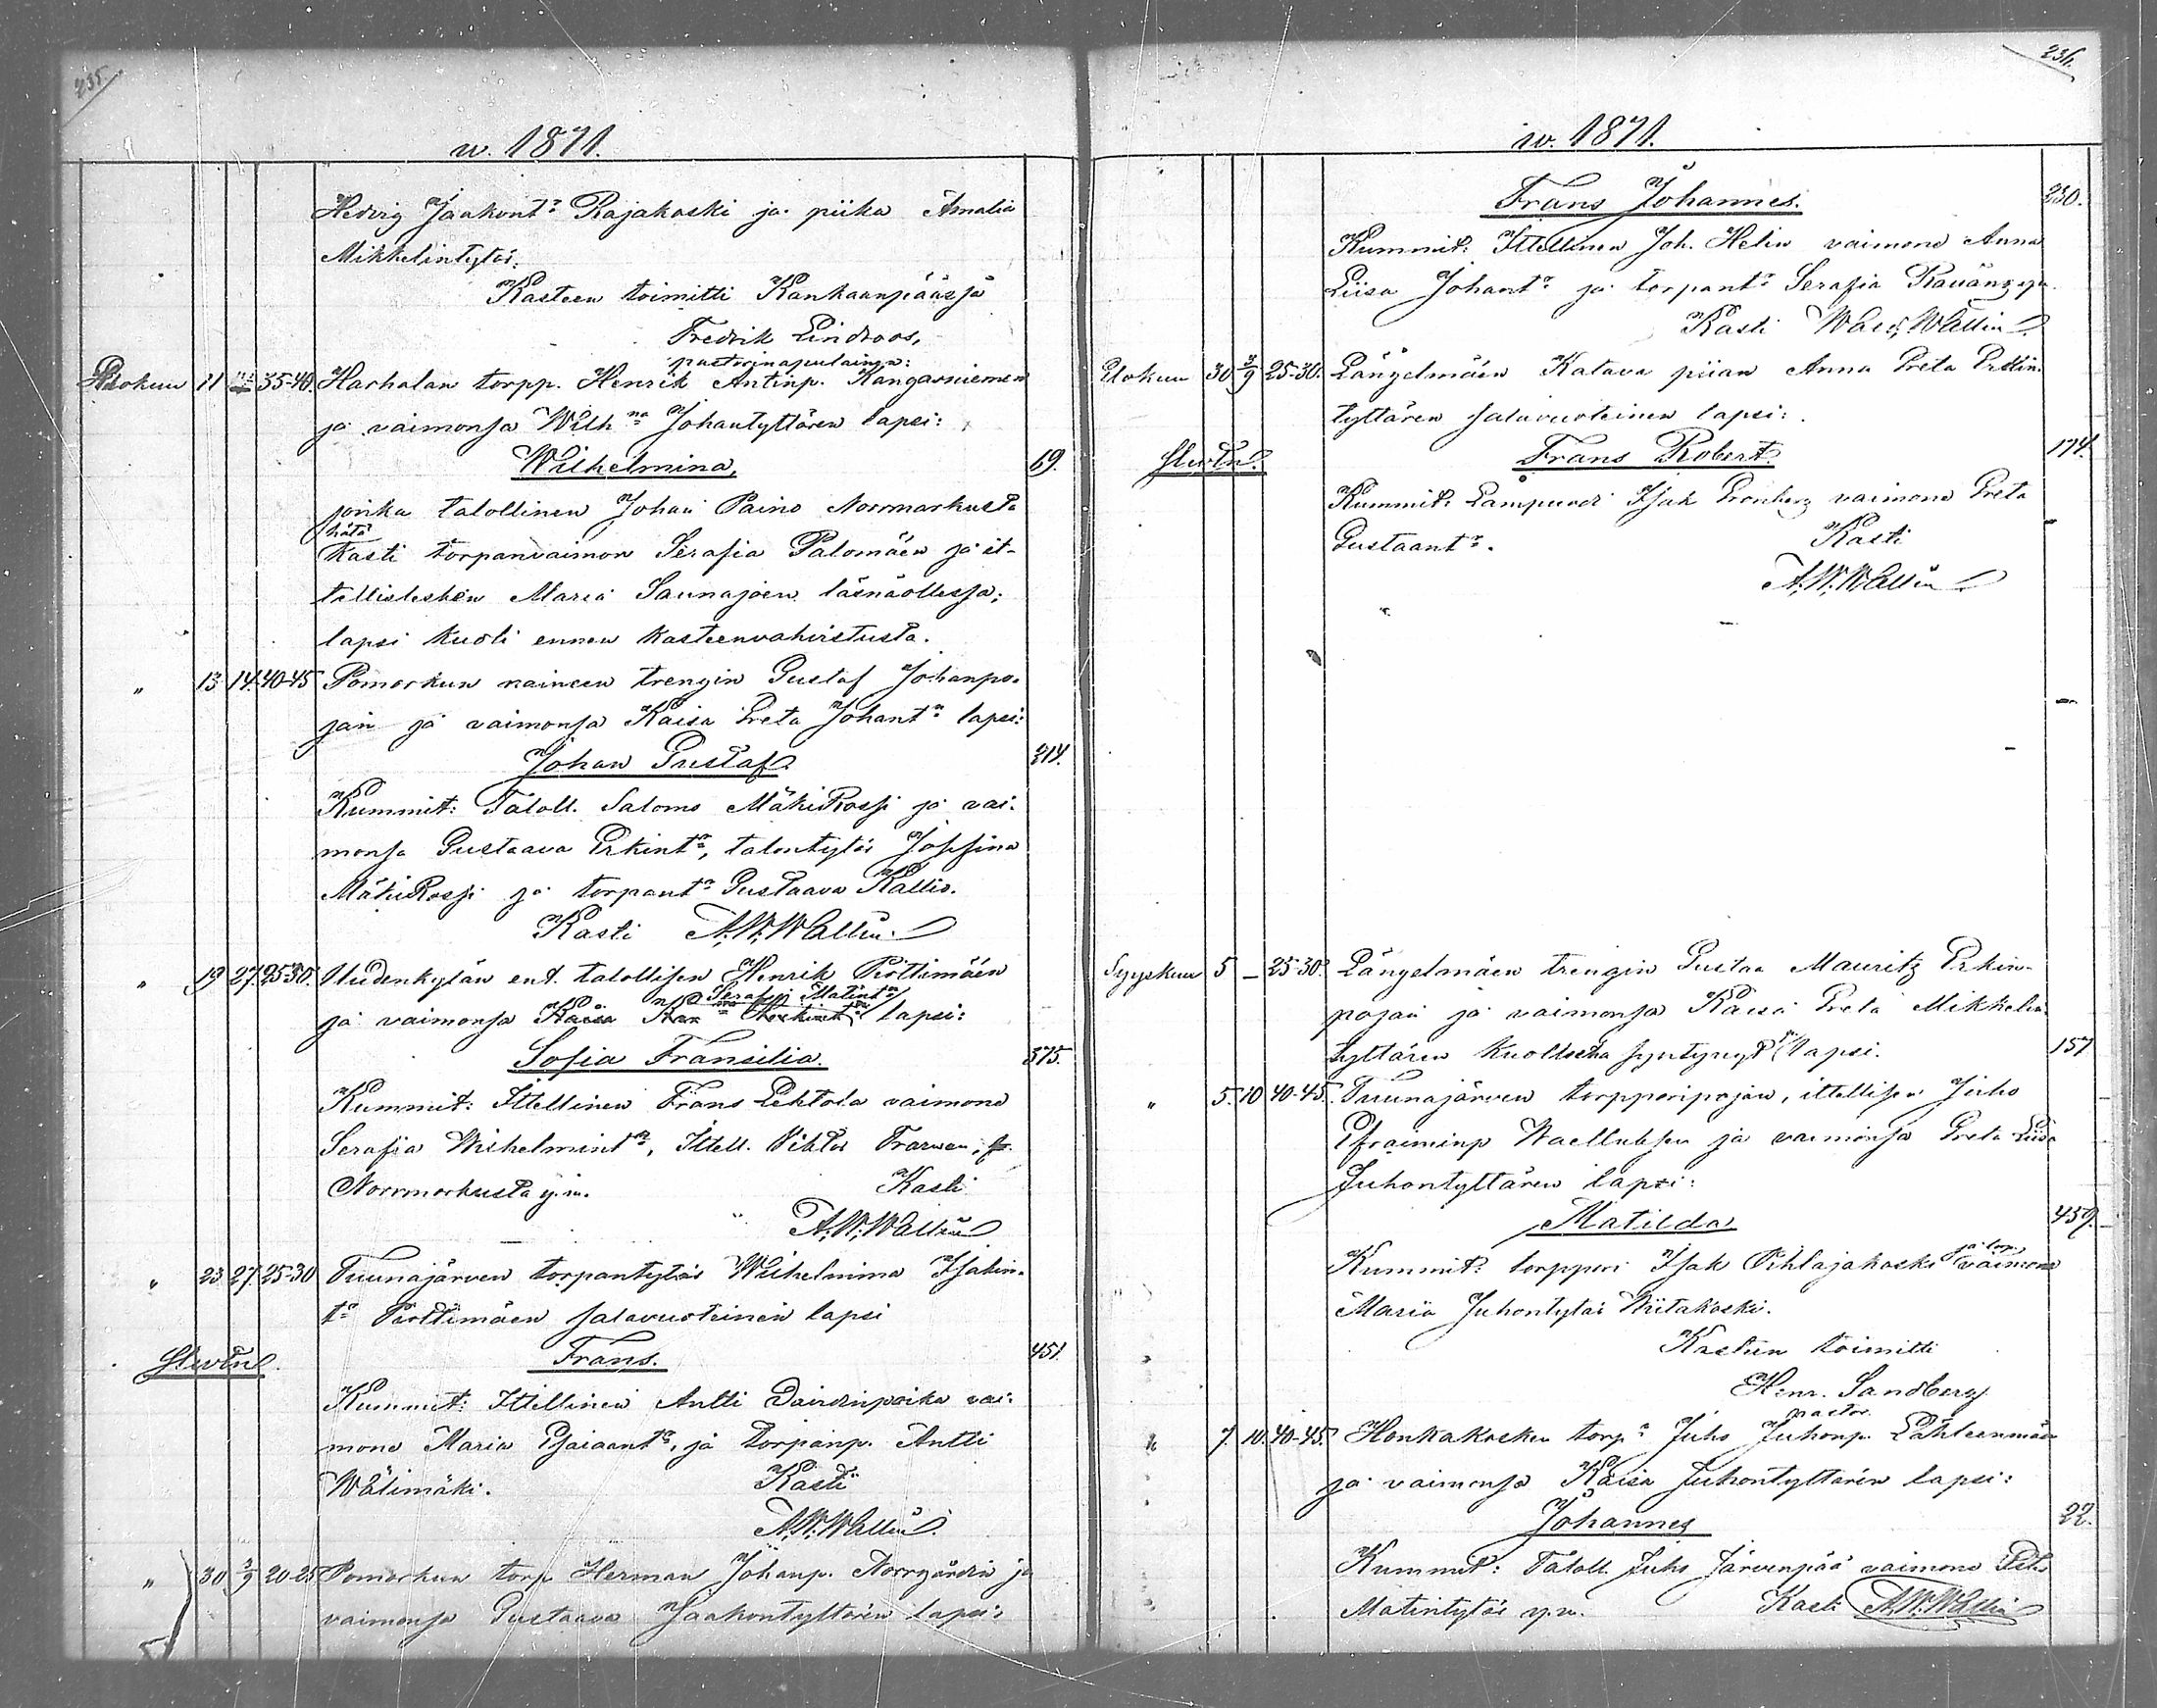 235.
w. 1871.
Hedvig Jaakont:r Rajakoski ja piika Amalia
Mikkelintytär.
Kasteen toimitti Kankaanpäässä
Fredrik Lindroos,
pastorinapulainen:
Elokuu 11 35-40. Harhalan torpp. Henrik Antinp. Kangasniemen
ja vaimonsa Wilh:na Johantyttären lapsi:
Wilhelmina, 69.
jonka talollinen Johan Paino Norrmarkusta
hätä
kasti torpanvaimon Serafia Palomäen ja it-
tellislesken Maria Saunajoen läsnäollessa;
lapsi kuoli ennen kasteenvahvistusta.
" 13 14. 40-45 Pomarkun naineen trengin Gustaf Johanpo-
jan ja vaimonsa Kaisa Greta Johant:r lapsi:
Johan Gustaf. 214.
Kummit: Taloll. Salomo MäkiRossi ja vai-
monsa Gustaava Erkint:r, talontytär Josefina
MäkiRossi ja torpant:r Gustaava Kallio.
Kasti A.W.Wallin.
" 19 27. 25-30. Uudenkylän ent. talollisen Henrik Perttimäen
Serafi: Matint:r
ja vaimonsa Kaisa lapsi:
Sofia Fransilia. 375.
Kummit: Ittellinen Frans Lehtola vaimone
Serafia Wilhelmint:r, Ittell. Viktor
Norrmarkusta y.m. Kasti
A.W.Wallin
" 23 27. 25-30 Tuunajärven torpantytär Wilhelmina Isakin-
t:r Perttimäen salavuoteinen lapsi
Frans. 451.
Kummit: Ittellinen Antti Davidinpoika vai-
mone Maria Esaiaant:r, ja torpanp. Antti
Wälimäki. Kasti
A.W.Wallin
" 30 3/9 20-25 Pomarkun torp. Herman Johanp. Norrgårdin ja
vaimonsa Gustaava Jaakontyttären lapsi:
236.
w. 1871.
Frans Johannes. 230.
Kummit: Ittellinen Joh. Helin vaimone Anna
Liisa Johant:r ja torpant:r Serafia
Kasti Wallin
Elokuu 30 3/9 25-30. Längelmäen Katava piian Anna Greta Erkin-
tyttären salavuoteinen lapsi:
Frans Robert. 174.
Kummit: Lampuodi Isak Gronberg vaimone Greta
Gustaant:r. Kasti
A.W.Wallin
Syyskuu 5 — 25-30. Längelmäen trengin Gustaa Mauritz Erkin-
pojan ja vaimonsa Kaisa Greta Mikkelin-
tyttären kuolleena syntynyt lapsi. 157
" 5. 10 40-45. Tuunajärven torpparipojan, ittellisen Juho
Efraiminp ja vaimonsa Greta Liisa
Juhontyttären lapsi:
Matilda 459.
ja tor.
Kummit: torppari Isak Pihlajakoski vaimone
Maria Juhontytär Wiitakoski.
Kasteen toimitti
Henr. Sandberg
pastor.
7. 10. 40-45. Honkakosken torp:n Juho Juhonp. Lähteenmäen
ja vaimonsa Kaisa Juhontyttären lapsi:
Johannes 22.
Kummit: Taloll. Juho Järvenpää vaimone
Matintytär y.m. Kasti A.W.Wallin